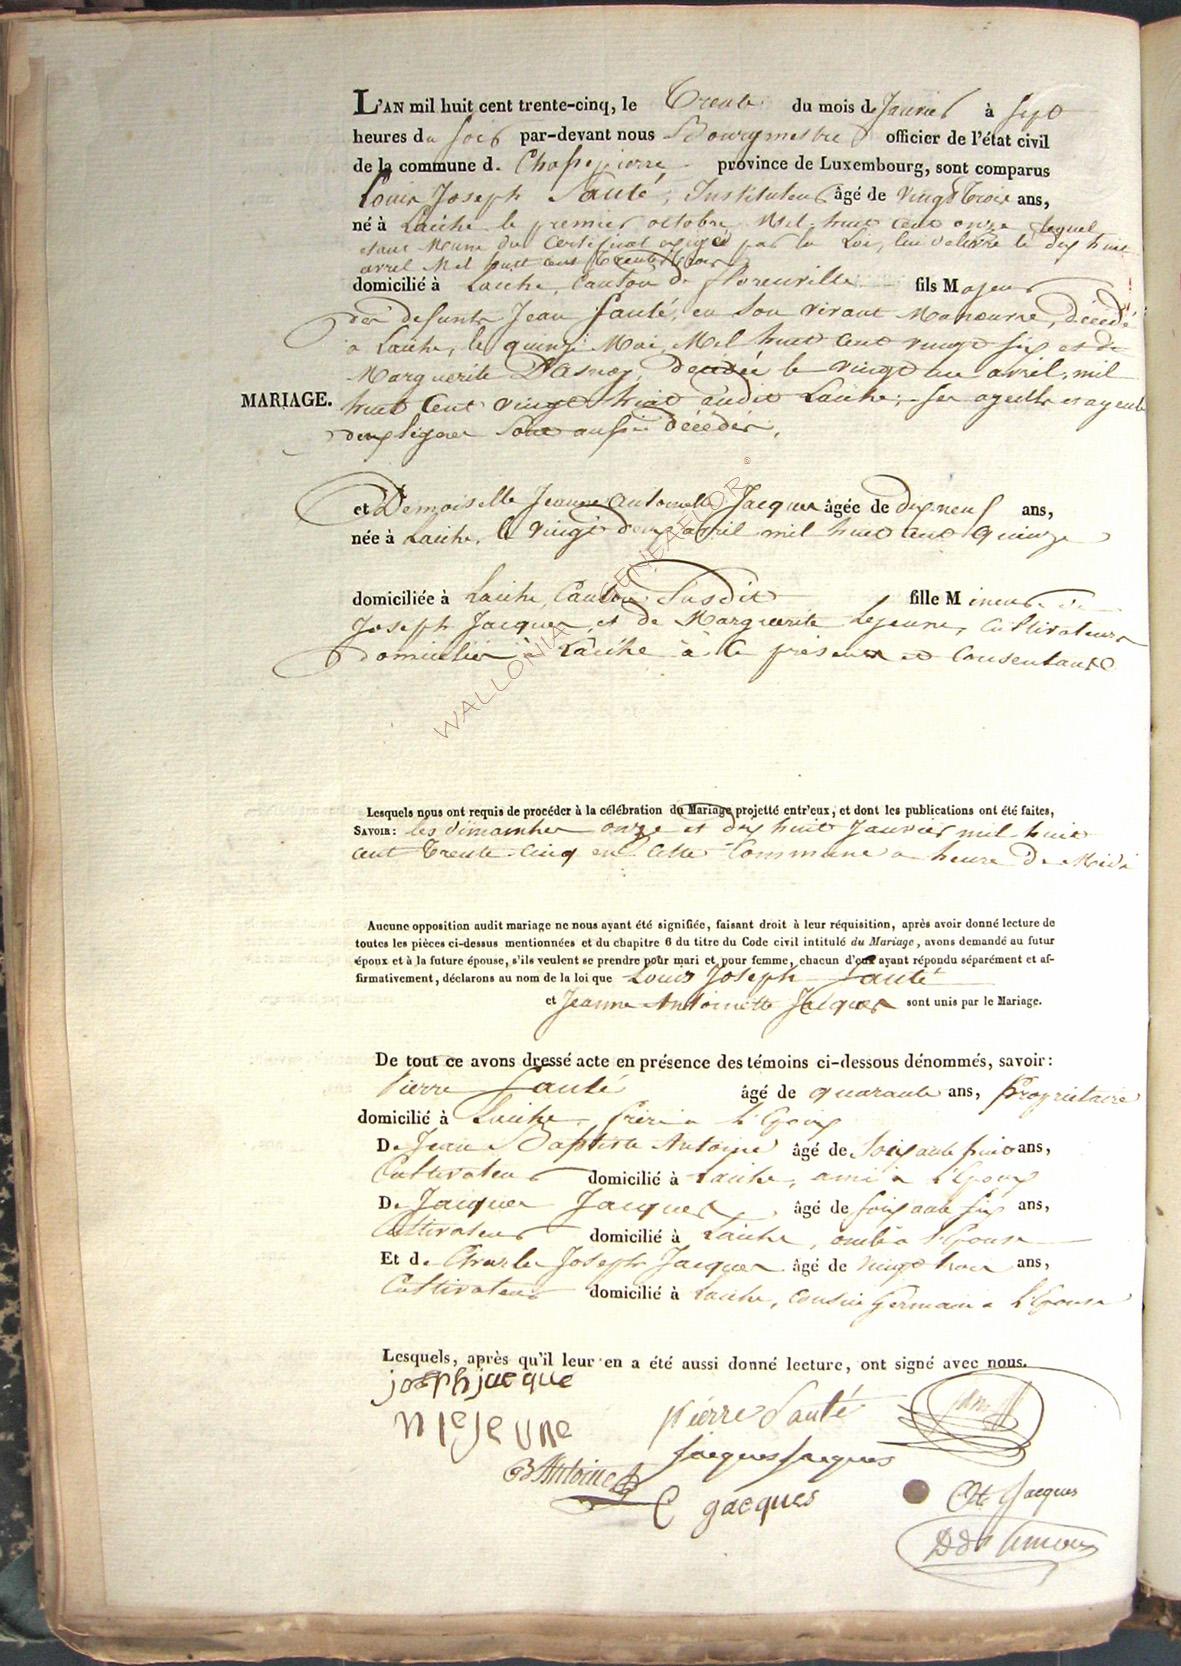 L'AN mil huit cent trente-cinq, le Trente du mois de Janvier à sept
heures du soir par-devant nous Bourgmestre officier de l'état civil
de la commune d. Chassepierre province de Luxembourg, sont comparus
Louis Joseph Santé, Instituteur âgé de vingt trois ans,
né à Laiche le premier octobre Mil huit cent onze lequel
etant Muni du certificat exigé par la Loi, lui délivré le dix huit
avril Mil huit cent trente trois
domicilié à Laiche, Canton de florenville fils Majeur
des defunts Jean Santé, en son vivant Manoeuvre, décédé
a Laiche, le quinze Mai Mil huit cent vingt six et de
Marguerite Dasnoy, décédée le vingt un avril, mil
MARIAGE.
huit cent vingt huit audit Laiche; ses ayeuls et ayeules
deux lignes sont aussi décédés.
et Demoiselle Jeanne Antoinette Jacques âgée de dix neuf ans,
née à Laiche, le vingt deux avril mil huit cent quinze
domiciliée à Laiche, Canton Susdit fille Mineure de
Joseph Jacques et de Marguerite Lejeune, Cultivateurs
domiciliés à Laiche à ce présents et Consentants
Lesquels nous ont requis de procéder à la célébration du Mariage projetté entr'eux, et dont les publications ont été faites,
SAVOIR: les dimanches onze et dix huit Janvier mil huit
cent Trente-cinq en cette Commune a heure de Midi
Aucune opposition audit mariage ne nous ayant été signifiée, faisant droit à leur réquisition, après avoir donné lecture de
toutes les pièces ci-dessus mentionnées et du chapitre 6 du titre du Code civil intitulé du Mariage, avons demandé au futur
époux et à la future épouse, s'ils veulent se prendre pour mari et pour femme, chacun d'eux ayant répondu séparément et af-
firmativement, déclarons au nom de la loi que Louis Joseph Santé
et Jeanne Antoinette Jacques sont unis par le Mariage.
De tout ce avons dressé acte en présence des témoins ci-dessous dénommés, savoir:
Pierre Santé âgé de quarante ans, Propriétaire
domicilié à Laiche, frère a l'Epoux
De Jean Baptiste Antoine âgé de Soixante huit ans,
Cultivateur domicilié à Laiche, ami a l'Epoux
De Jacques Jacques, âgé de soixante six ans,
Cultivateur domicilié à Laiche, oncle a l'Epouse
Et de Charles Joseph Jacques âgé de vingt trois ans,
Cultivateur domicilié à Laiche, cousin Germain a l'Epouse
Lesquels, après qu'il leur en a été aussi donné lecture, ont signé avec nous.
joseph jacque
M lejeune
pierre Santé
jacques jacques
B Antoine
C gacques
Jacques
WALLONIA GENEAFLOR ©